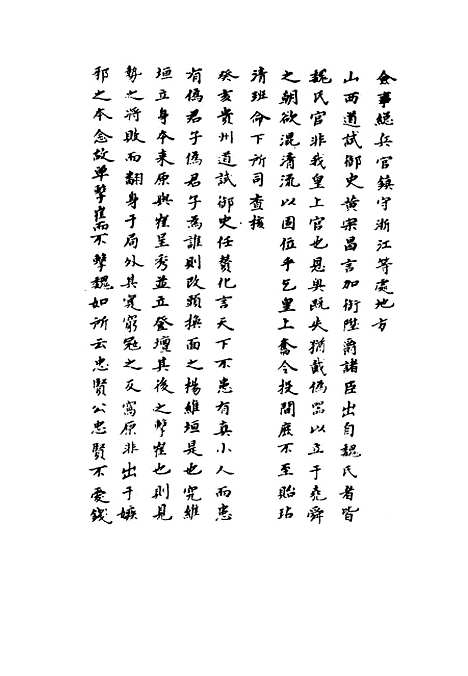 僉事總兵官鎮守浙江等處地方
山西道試御史黃宗昌言加銜陞爵諸臣出自魏氏者皆
魏氏官非我皇上官也恩與既失猶戴偽器以立于堯舜
之朝欲混清流以固位乎乞皇上奮令投閒庶不至貽玷
清班命下所司查核
癸亥貴州道試御史任贊化言天下不患有真小人而患
有偽君子偽君子為誰則改頭換面之楊維垣是也究維
垣立身本來原與崔呈秀並立登壇其後之擊崔也則見
勢之將敗而翻身于局外其窮寇之反寫原非出于嫉
邪之本念故單擊崔而不擊魏如所云忠賢公忠賢不愛錢